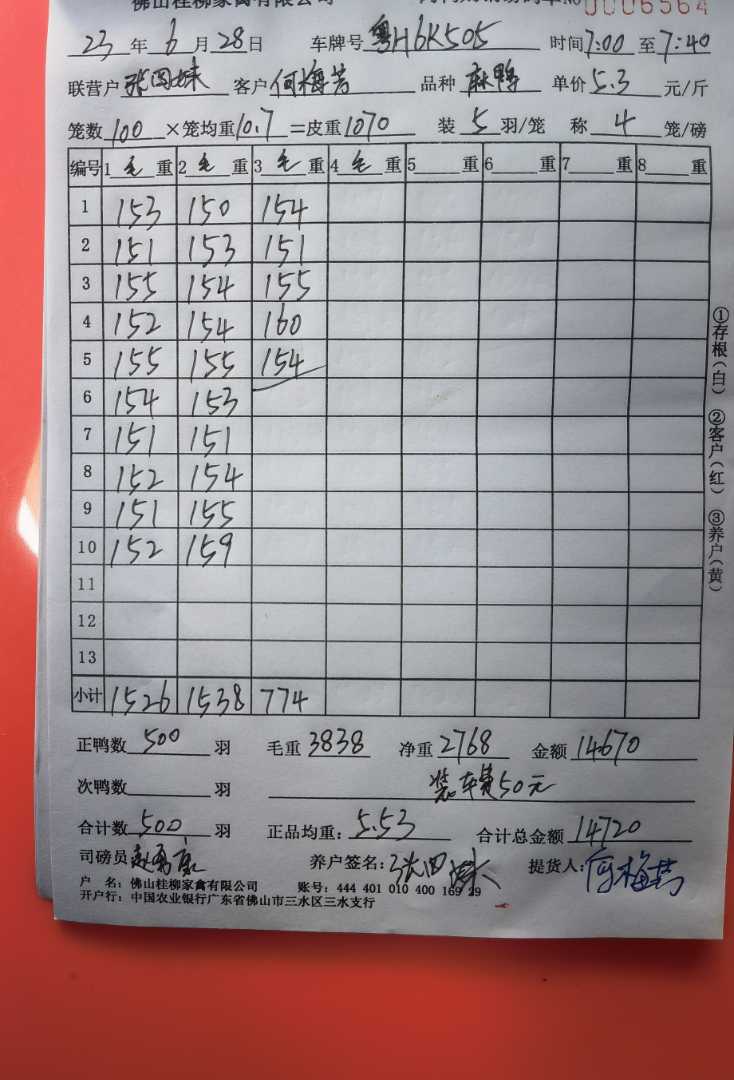 佛山桂柳家禽有限公司 0006564
23年6月28日 车牌号粤H6K505 时间7:00至7:40
联营户张四妹 客户何梅芳 品种麻鸭 单价5.3元/斤
笼数100×笼均重10.7=皮重1070 装5羽/笼 称4笼/磅
编号 1毛重 2毛重 3毛重 4毛重 5重 6重 7重 8重
1 153 150 154
2 151 153 151
3 155 154 155
4 152 154 160
5 155 155 154
6 154 153
7 151 151
8 152 154
9 151 155
10 152 159
11
12
13
小计 1526 1538 774
正鸭数500羽 毛重3838 净重2768 金额14670
次鸭数 羽 装车费50元
合计数500羽 正品均重:5.53 合计总金额14720
司磅员 养户签名:张四妹 提货人:何梅芳
户 名:佛山桂柳家禽有限公司 账号:444 401 010 400 169 29
开户行:中国农业银行广东省佛山市三水区三水支行
①存根(白) ②客户(红) ③养户(黄)